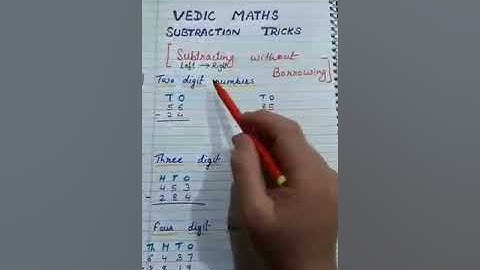 VEDIC MATHS
SUBTRACTION TRICKS
[Subtracting without
Left → Right
Borrowing]
Two digit numbers
T O
5 6
- 2 4
T O
8 5
Three digit
H T O
4 5 3
- 2 8 4
Four digit
Th H T O
6 4 3 7